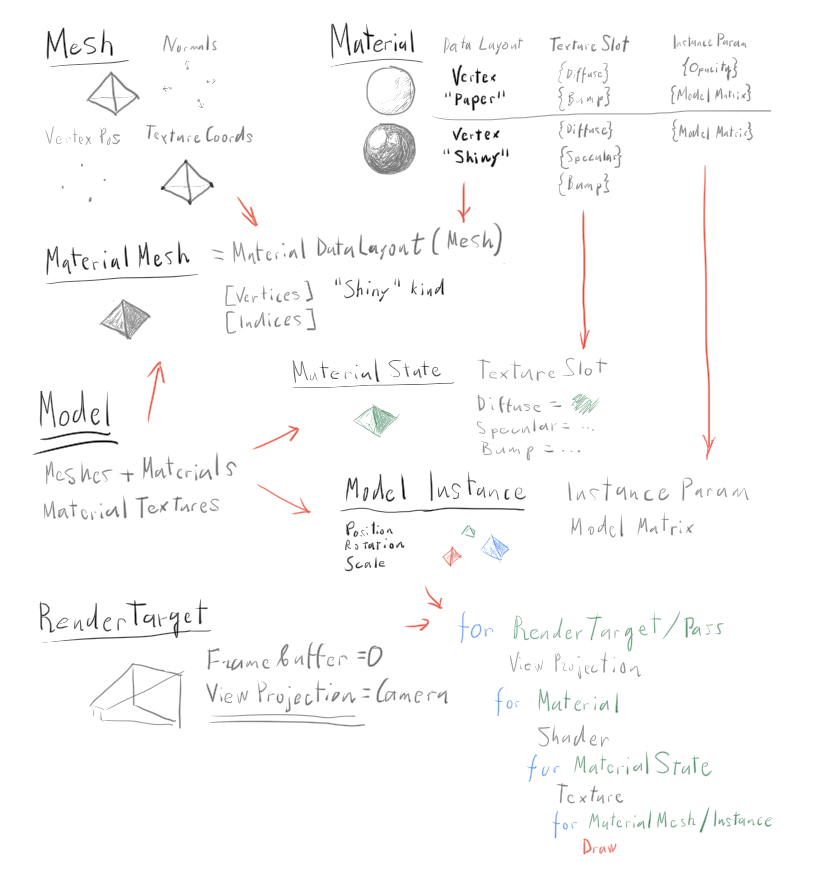 Mesh
Normals
Vertex Pos
Texture Coords
Material
Data Layout
Texture Slot
Instance Param
Vertex
"Paper"
{Diffuse}
{Bump}
{Opacity}
{Model Matrix}
Vertex
"Shiny"
{Diffuse}
{Specular}
{Bump}
{Model Matrix}
Material Mesh = Material DataLayout (Mesh)
[Vertices] "Shiny" kind
[Indices]
Material State
Texture Slot
Diffuse =
Specular = ...
Bump = ...
Model
Meshes + Materials
Material Textures
Model Instance
Position
Rotation
Scale
Instance Param
Model Matrix
RenderTarget
Frame Buffer = 0
View Projection = Camera
for RenderTarget/Pass
View Projection
for Material
Shader
for MaterialState
Texture
for MaterialMesh/Instance
Draw